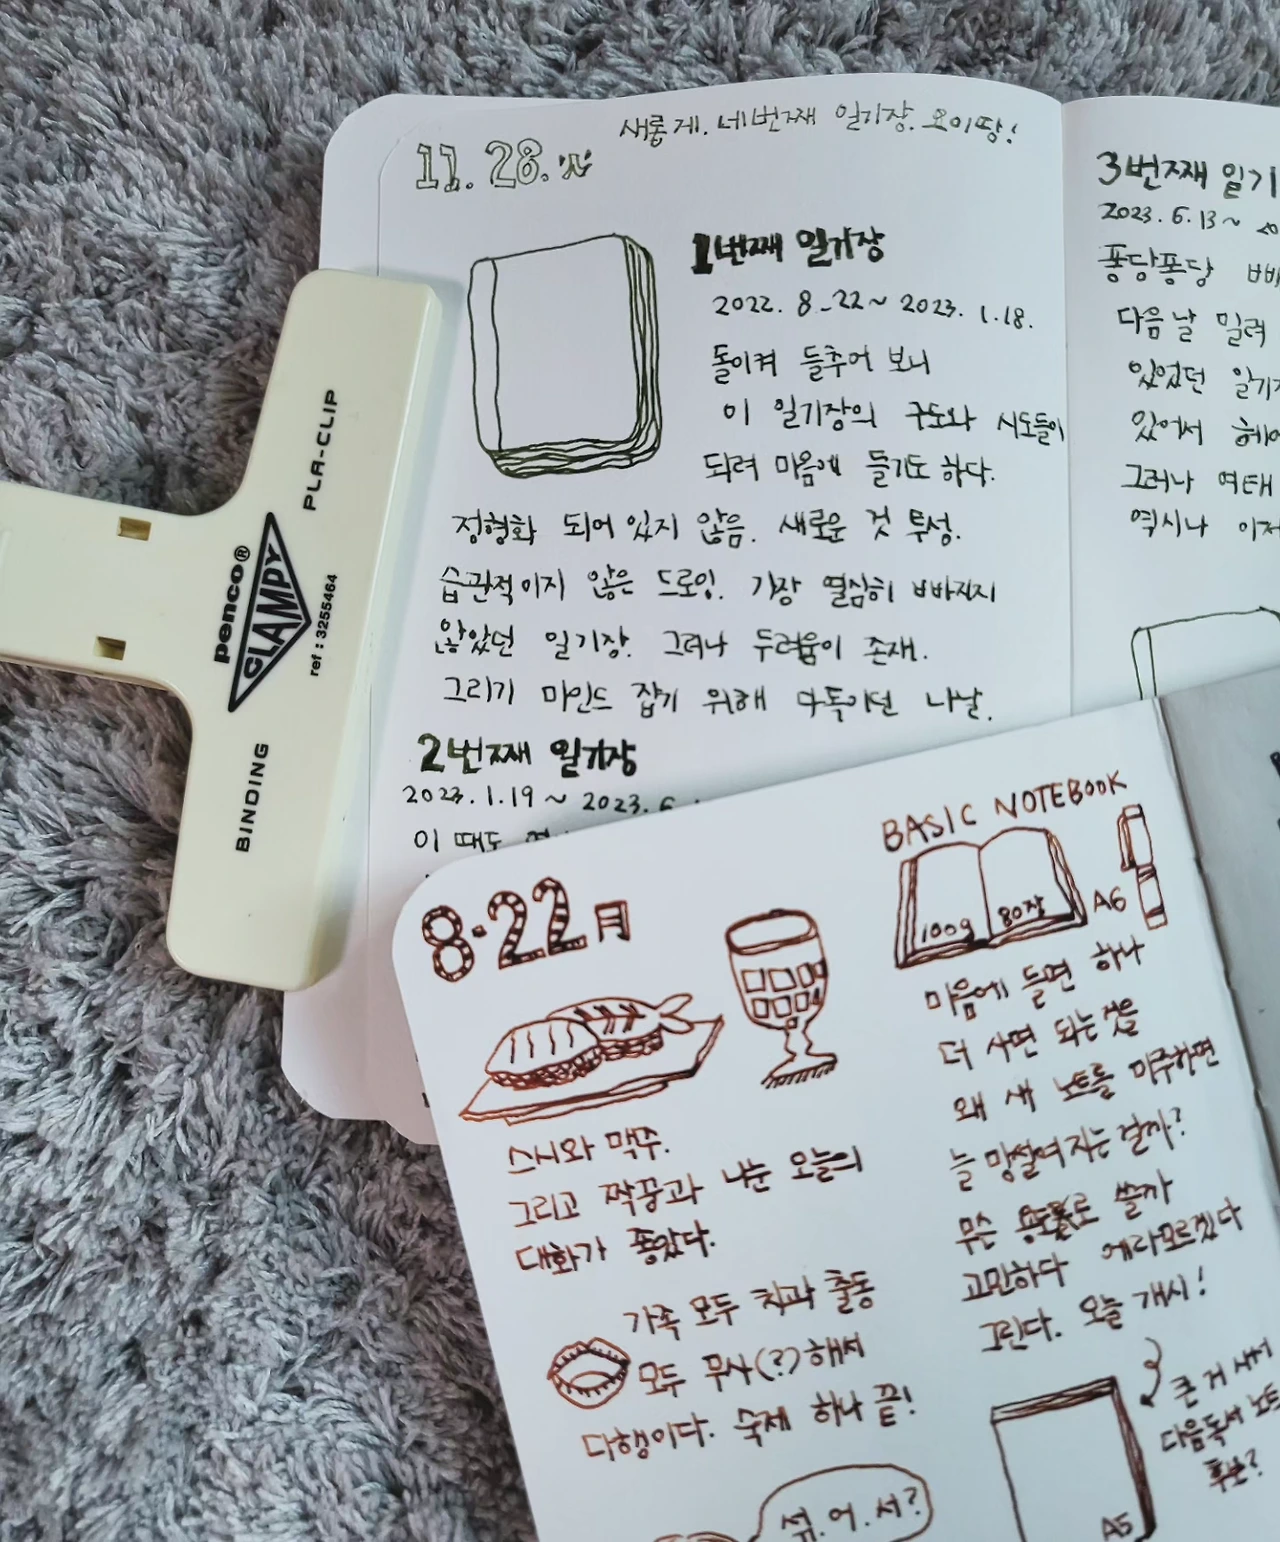 새롭게. 네번째 일기장. 요이땅!
11. 28. 火
1번째 일기장
2022. 8. 22 ~ 2023. 1. 18.
돌이켜 들추어 보니
이 일기장의 구도와 시도들이
되려 마음에 들기도 하다.
정형화 되어 있지 않음. 새로운 것 투성.
습관적이지 않은 드로잉. 가장 열심히 빠빠지지
않았던 일기장. 그러나 두려움이 존재.
그리기 마인드 잡기 위해 다독이던 나날.
2번째 일기장
2023. 1. 19 ~ 2023. 6
이 때도
3번째 일기
2023. 6. 13 ~ 20
퐁당퐁당
다음날 밀려
있었던 일기
있어서 헤
그러나 여태
역시나 이제
PLA-CLIP
penco®
CLAMPY
ref : 3255464
BINDING
8. 22 月
스시와 맥주.
그리고 짝꿍과 나눈 오늘의
대화가 좋았다.
가족 모두 치과 출동
모두 무사(?)해서
다행이다. 숙제 하나 끝!
섞.어.서?
BASIC NOTEBOOK
100g 80장 A6
마음에 들면 하나
더 사면 되는 것을
왜 새 노트를 마주하면
늘 망설여 지는 걸까?
무슨 용도로 쓸까
고민하다 에라모르겠다
그린다. 오늘 개시!
큰 거 사서
다음 독서 노트
후보?
A5